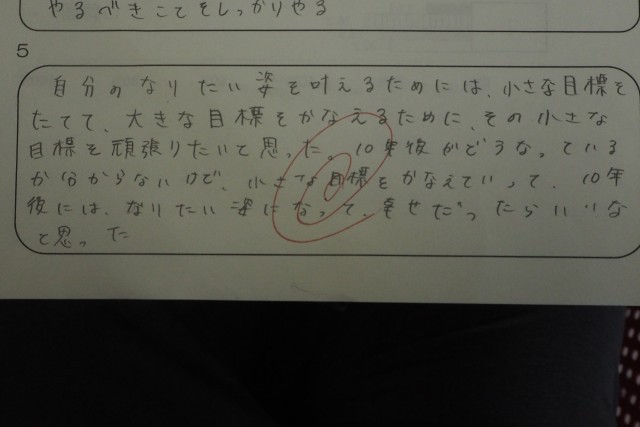 やるべきことをしっかりやる
5
自分のなりたい姿を叶えるためには、小さな目標を
たてて、大きな目標をかなえるために、その小さな
目標を頑張りたいと思った。10年後がどうなっている
か分からないけど、小さな目標をかなえていって、10年
後には、なりたい姿になって、幸せだったらいいな
と思った